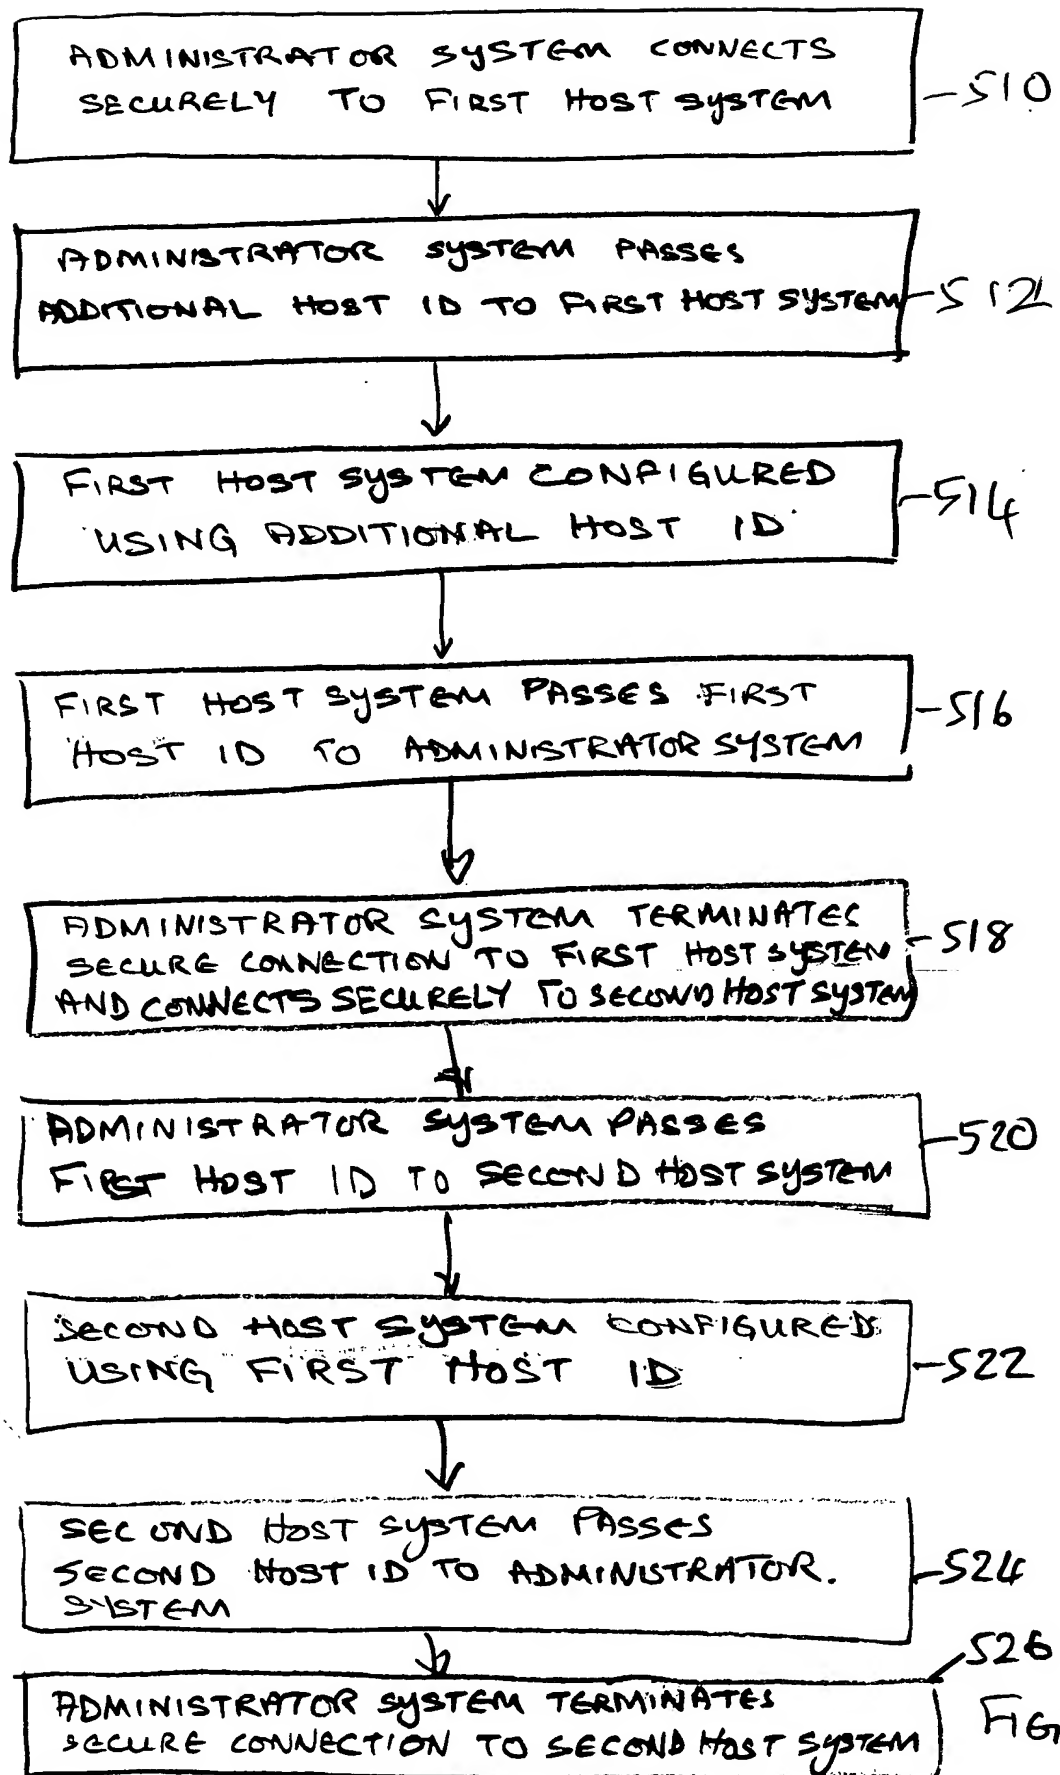 ADMINISTRATOR SYSTEM CONNECTS
SECURELY TO FIRST HOST SYSTEM
510
ADMINISTRATOR SYSTEM PASSES
ADDITIONAL HOST ID TO FIRST HOST SYSTEM
512
FIRST HOST SYSTEM CONFIGURED
USING ADDITIONAL HOST ID
514
FIRST HOST SYSTEM PASSES FIRST
HOST ID TO ADMINISTRATOR SYSTEM
516
ADMINISTRATOR SYSTEM TERMINATES
SECURE CONNECTION TO FIRST HOST SYSTEM
AND CONNECTS SECURELY TO SECOND HOST SYSTEM
518
ADMINISTRATOR SYSTEM PASSES
FIRST HOST ID TO SECOND HOST SYSTEM
520
SECOND HOST SYSTEM CONFIGURED
USING FIRST HOST ID
522
SECOND HOST SYSTEM PASSES
SECOND HOST ID TO ADMINISTRATOR.
SYSTEM
524
526
ADMINISTRATOR SYSTEM TERMINATES
SECURE CONNECTION TO SECOND HOST SYSTEM
FIG